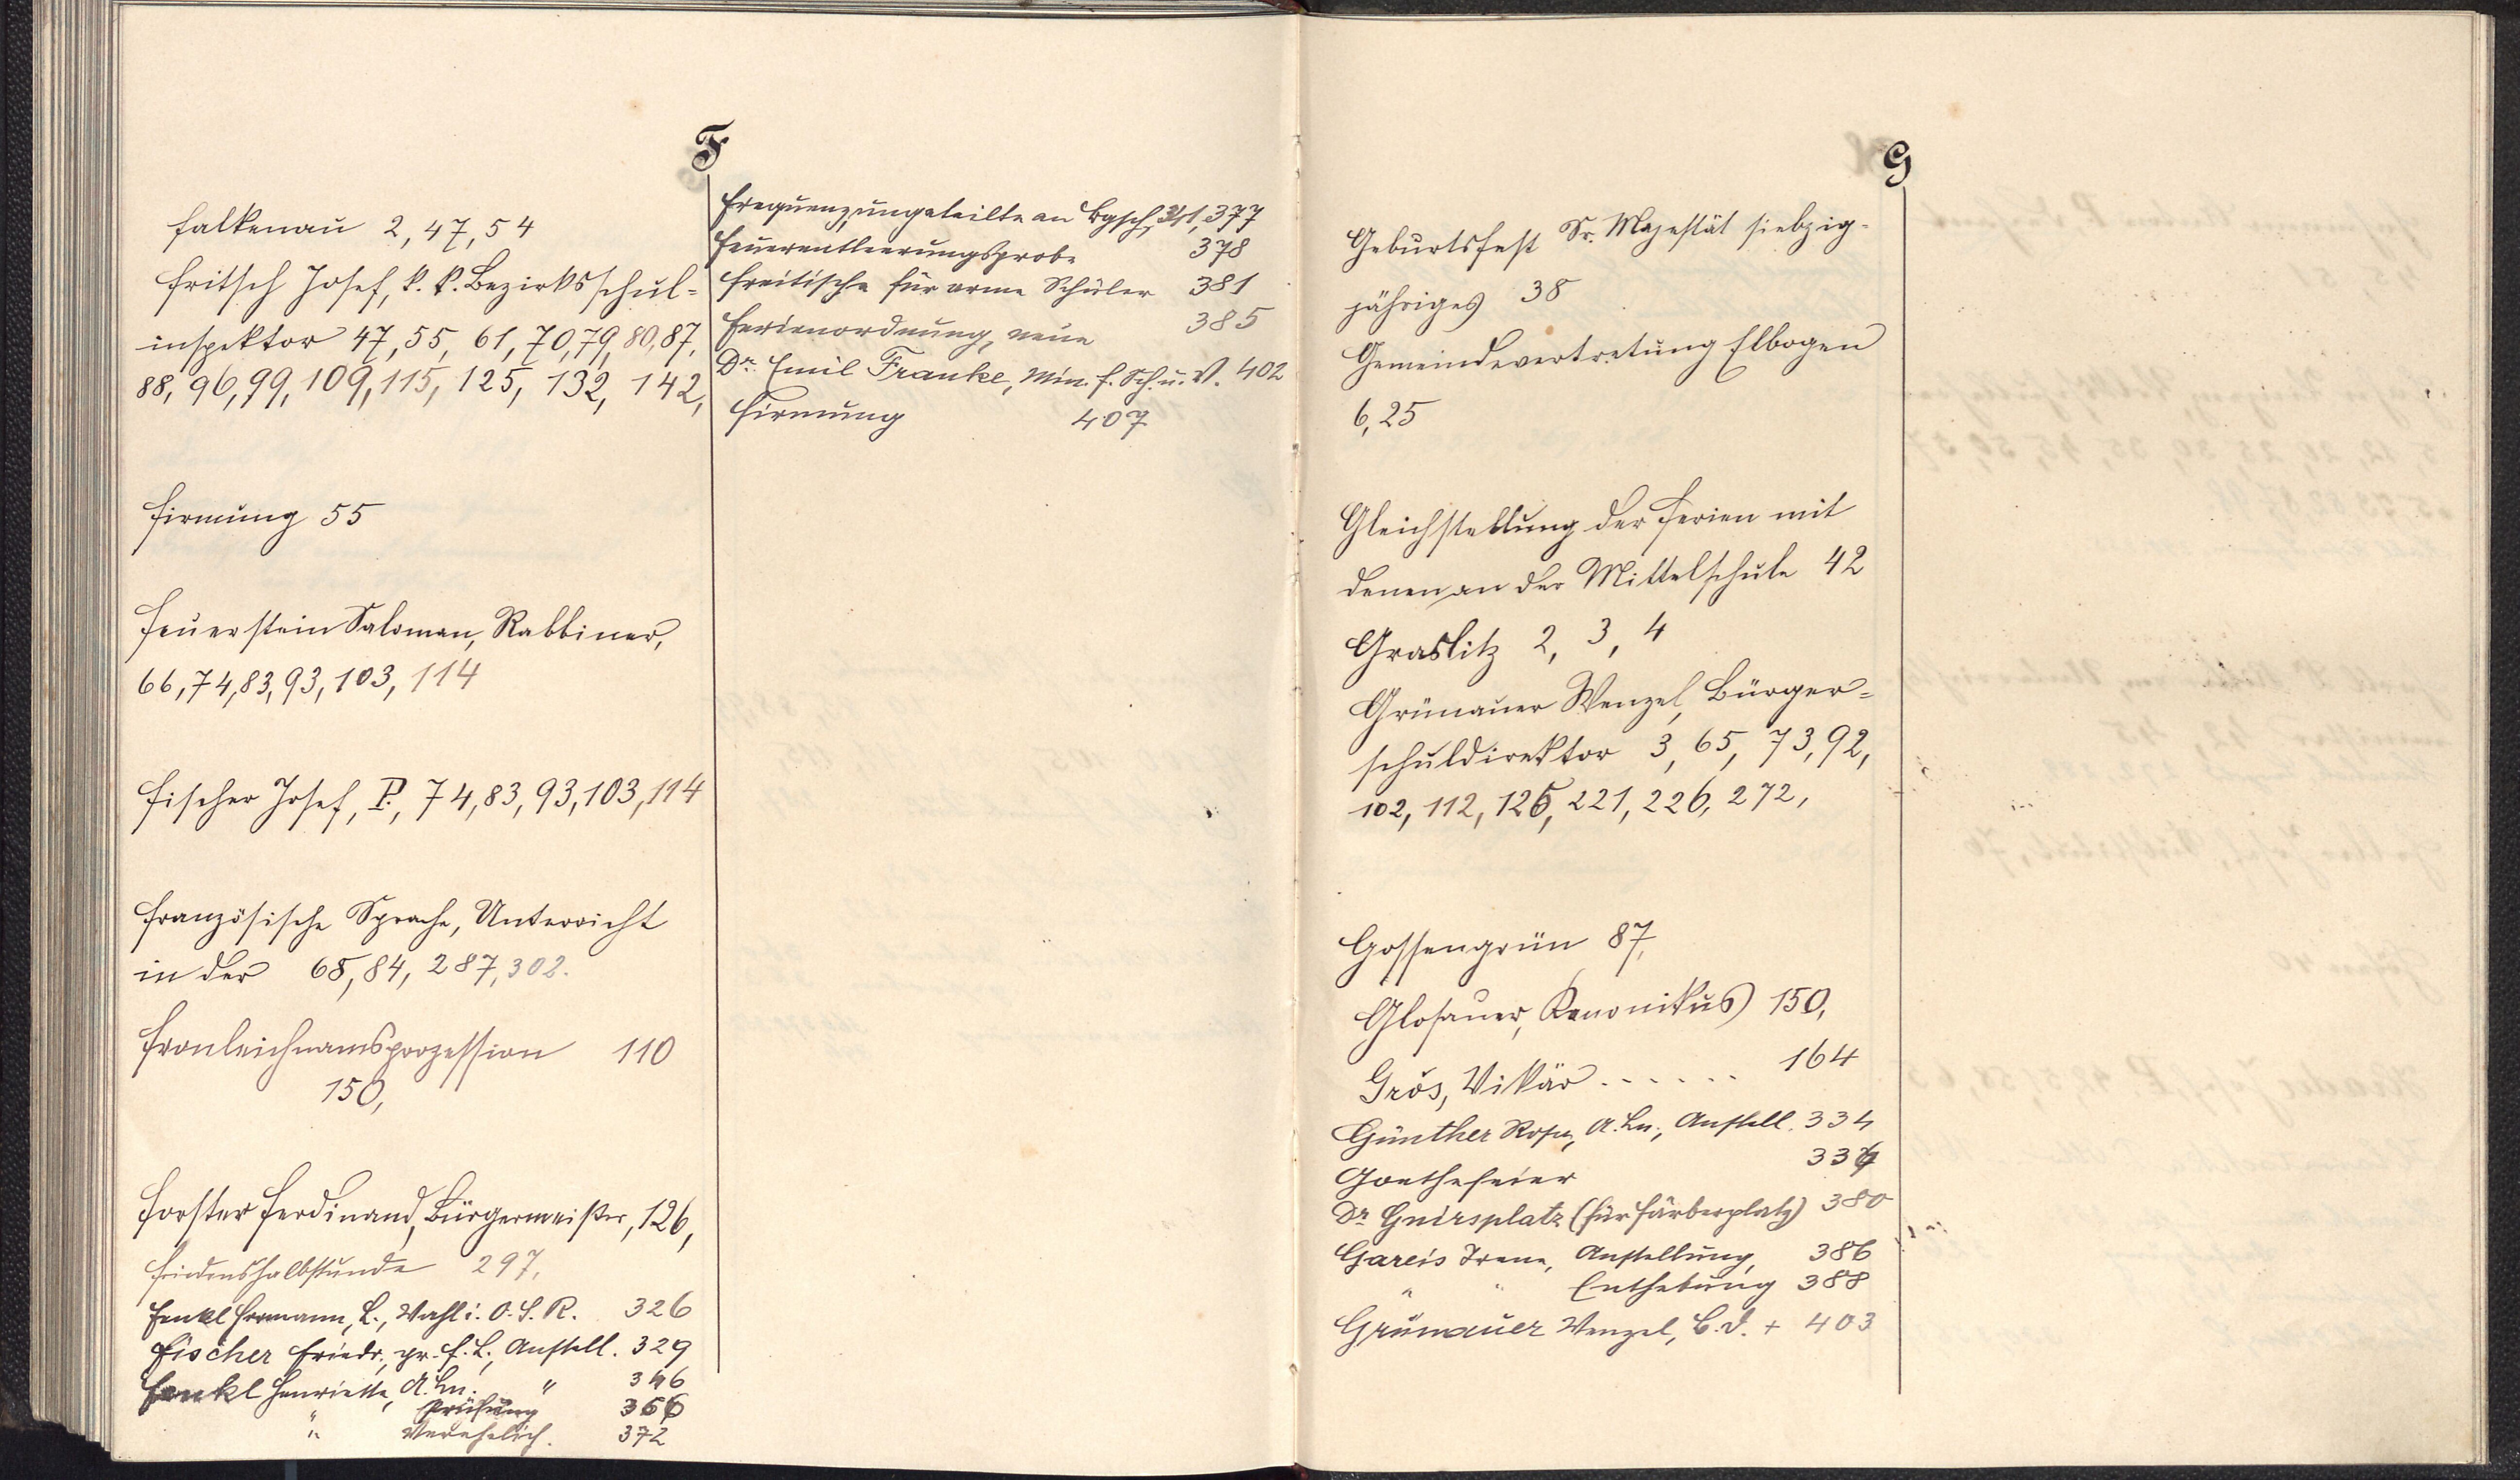 F
Falkenau 2, 47, 54
Fritsch Josef, k. k. Bezirksschul-
inspektor 47, 55, 61, 70, 79, 80, 87,
88, 96, 99, 109, 115, 125, 132, 142,
Firmung 55
Feuerstein Saloman, Rabbiner,
66, 74, 83, 93, 103, 114
Fischer Josef, P., 74, 83, 93, 103, 114
Französische Sprache, Unterricht
in der 68, 84, 287, 302.
Fronleichnamsprozession 110
150,
Forster Ferdinand, Bürgermeister, 126,
Friedenshalbstunde 297,
Fenkl Hermann, L., Wahl i. O. S. R. 326
Fischer Friedr., pr. f. L., Anstell. 329
Fenkl Henriette, A. Ln. " 346
" Prüfung 366
" Verehelich. 372
Frequenz, ungeteilte an Bgsch, 377
Feuerentleerungsprobe 378
Freitische für arme Schüler 381
Ferienordnung, neue 385
Dr. Emil Franke, Min. f. Sch. u. V. 402
Firmung 407
G
Geburtsfest Sr. Majestät siebzig-
jähriges 38
Gemeindevertretung Elbogen
6, 25
Gleichstellung der Ferien mit
denen an der Mittelschule 42
Graslitz 2, 3, 4
Grünauer Wenzel, Bürger-
schuldirektor 3, 65, 73, 92,
102, 112, 126, 221, 226, 272,
Gossengrün 87,
Glosauer, Kanonikus 150,
Grös, Vikär ...... 164
Günther Rosa, A. Ln., Anstell. 334
Goethefeier 334
Dr Gnirsplatz (für Färberplatz) 380
Gareis Irene, Anstellung, 386
" " Enthebung 388
Grünauer Wenzel, B. D. + 403